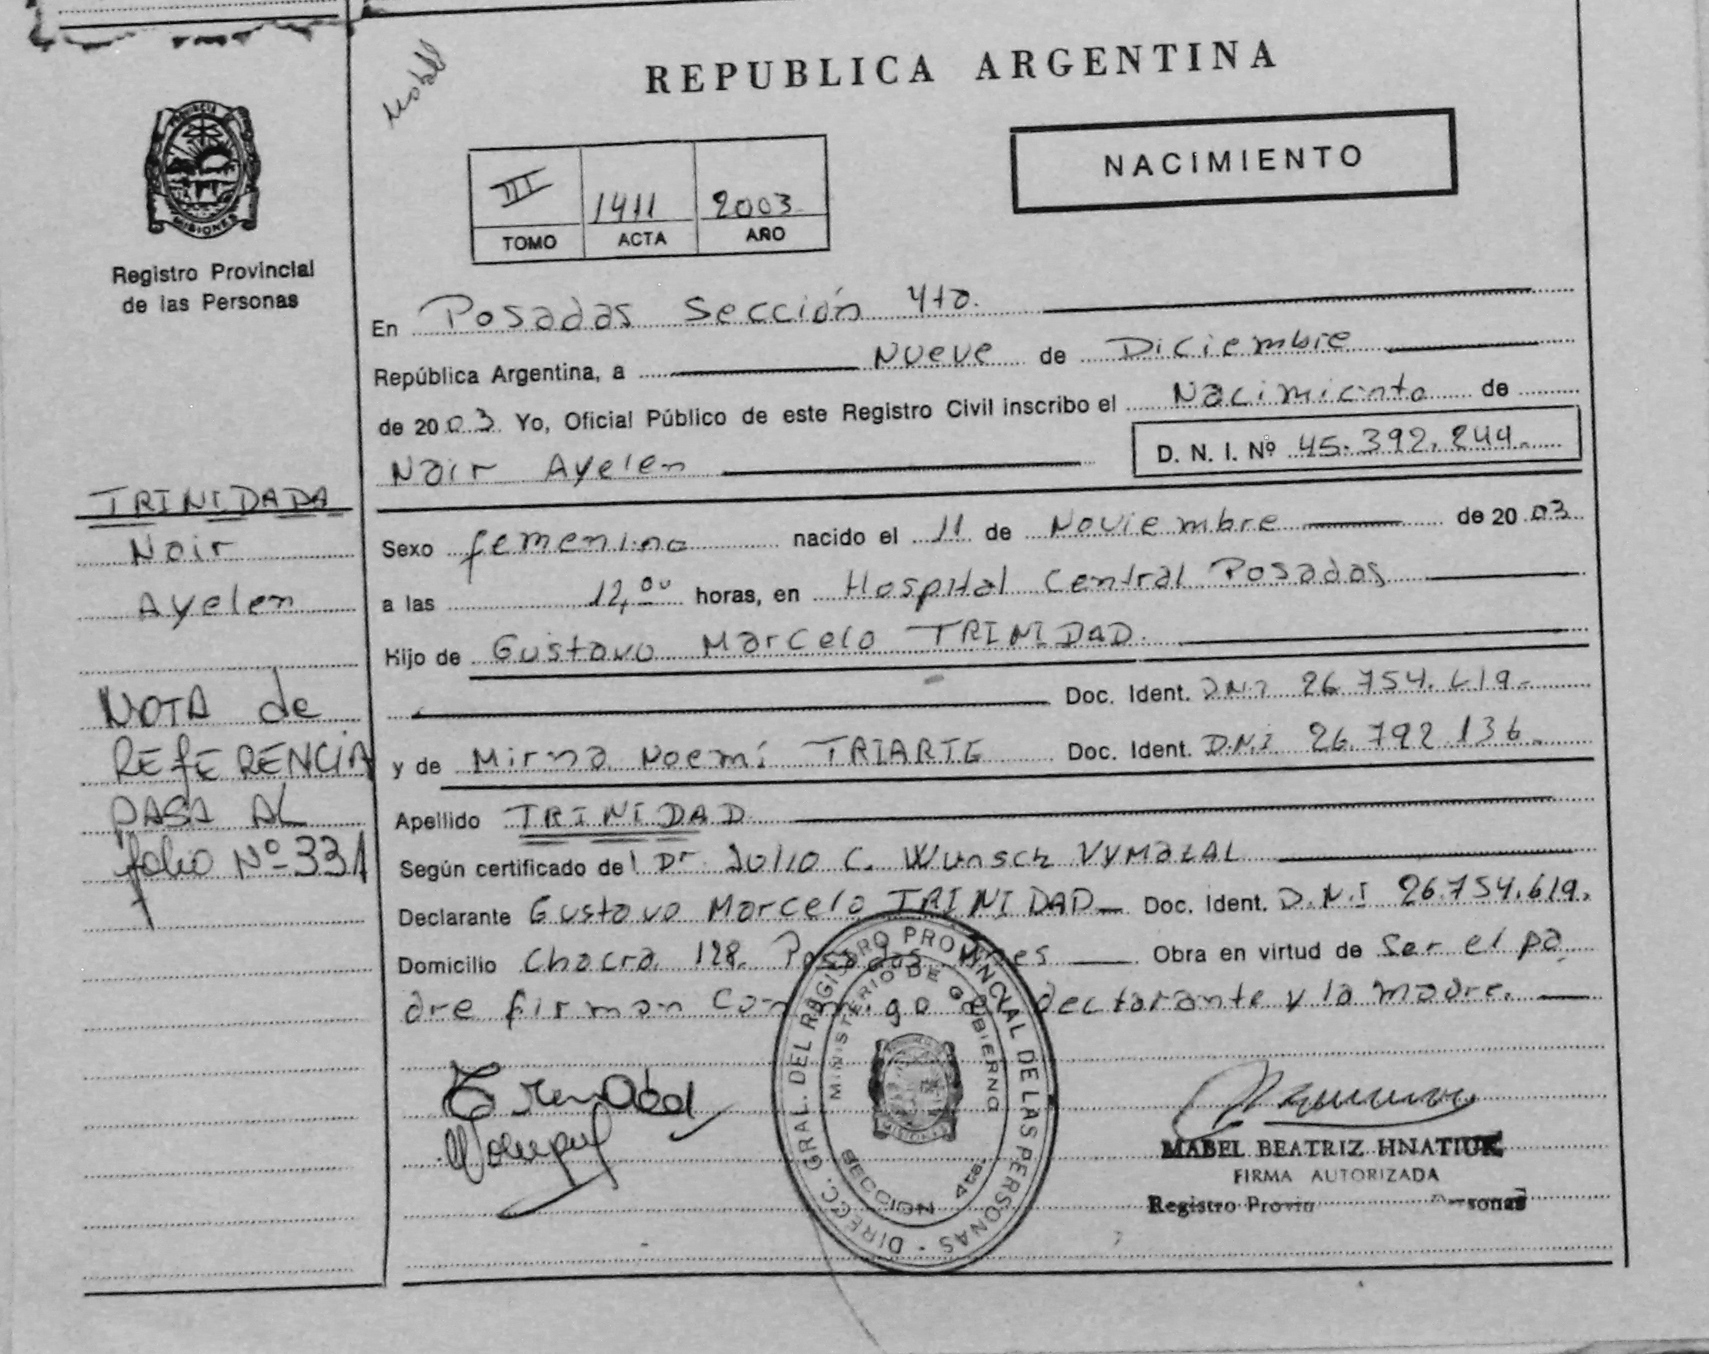 REPUBLICA ARGENTINA
NACIMIENTO
III 1411 2003
TOMO ACTA AÑO
PROVINCIA DE
MISIONES
Registro Provincial
de las Personas
En Posadas Sección 4ta.
República Argentina, a Nueve de Diciembre
de 2003 Yo, Oficial Público de este Registro Civil inscribo el Nacimiento de
Nair Ayelen D. N. I. Nº 45.392.244.
Sexo femenino nacido el 11 de Noviembre de 2003
a las 12,00 horas, en Hospital Central Posadas
Hijo de Gustavo Marcelo TRINIDAD.
Doc. Ident. DNI 26.754.619.
y de Mirna Noemí TRIARTE Doc. Ident. D.N.I 26.792.136.
Apellido TRINIDAD
Según certificado del Dr. Julio C. Wunsch VYMAZAL
Declarante Gustavo Marcelo TRINIDAD Doc. Ident. D.N.I 26.754.619.
Domicilio Chacra 128. Posadas Mnes Obra en virtud de Ser el pa
dre firman conmigo el declarante y la madre.
TRINIDADA
Nair
Ayelen
NOTA de
REFERENCIA
PASA AL
folio Nº 331
DIRECC. GRAL. DEL RAGISTRO PROVINCIAL DE LAS PERSONAS
MINISTERIO DE GOBIERNO
MISIONES
SECCION 4ta.
MABEL BEATRIZ HNATIUK
FIRMA AUTORIZADA
Registro Provin Personas